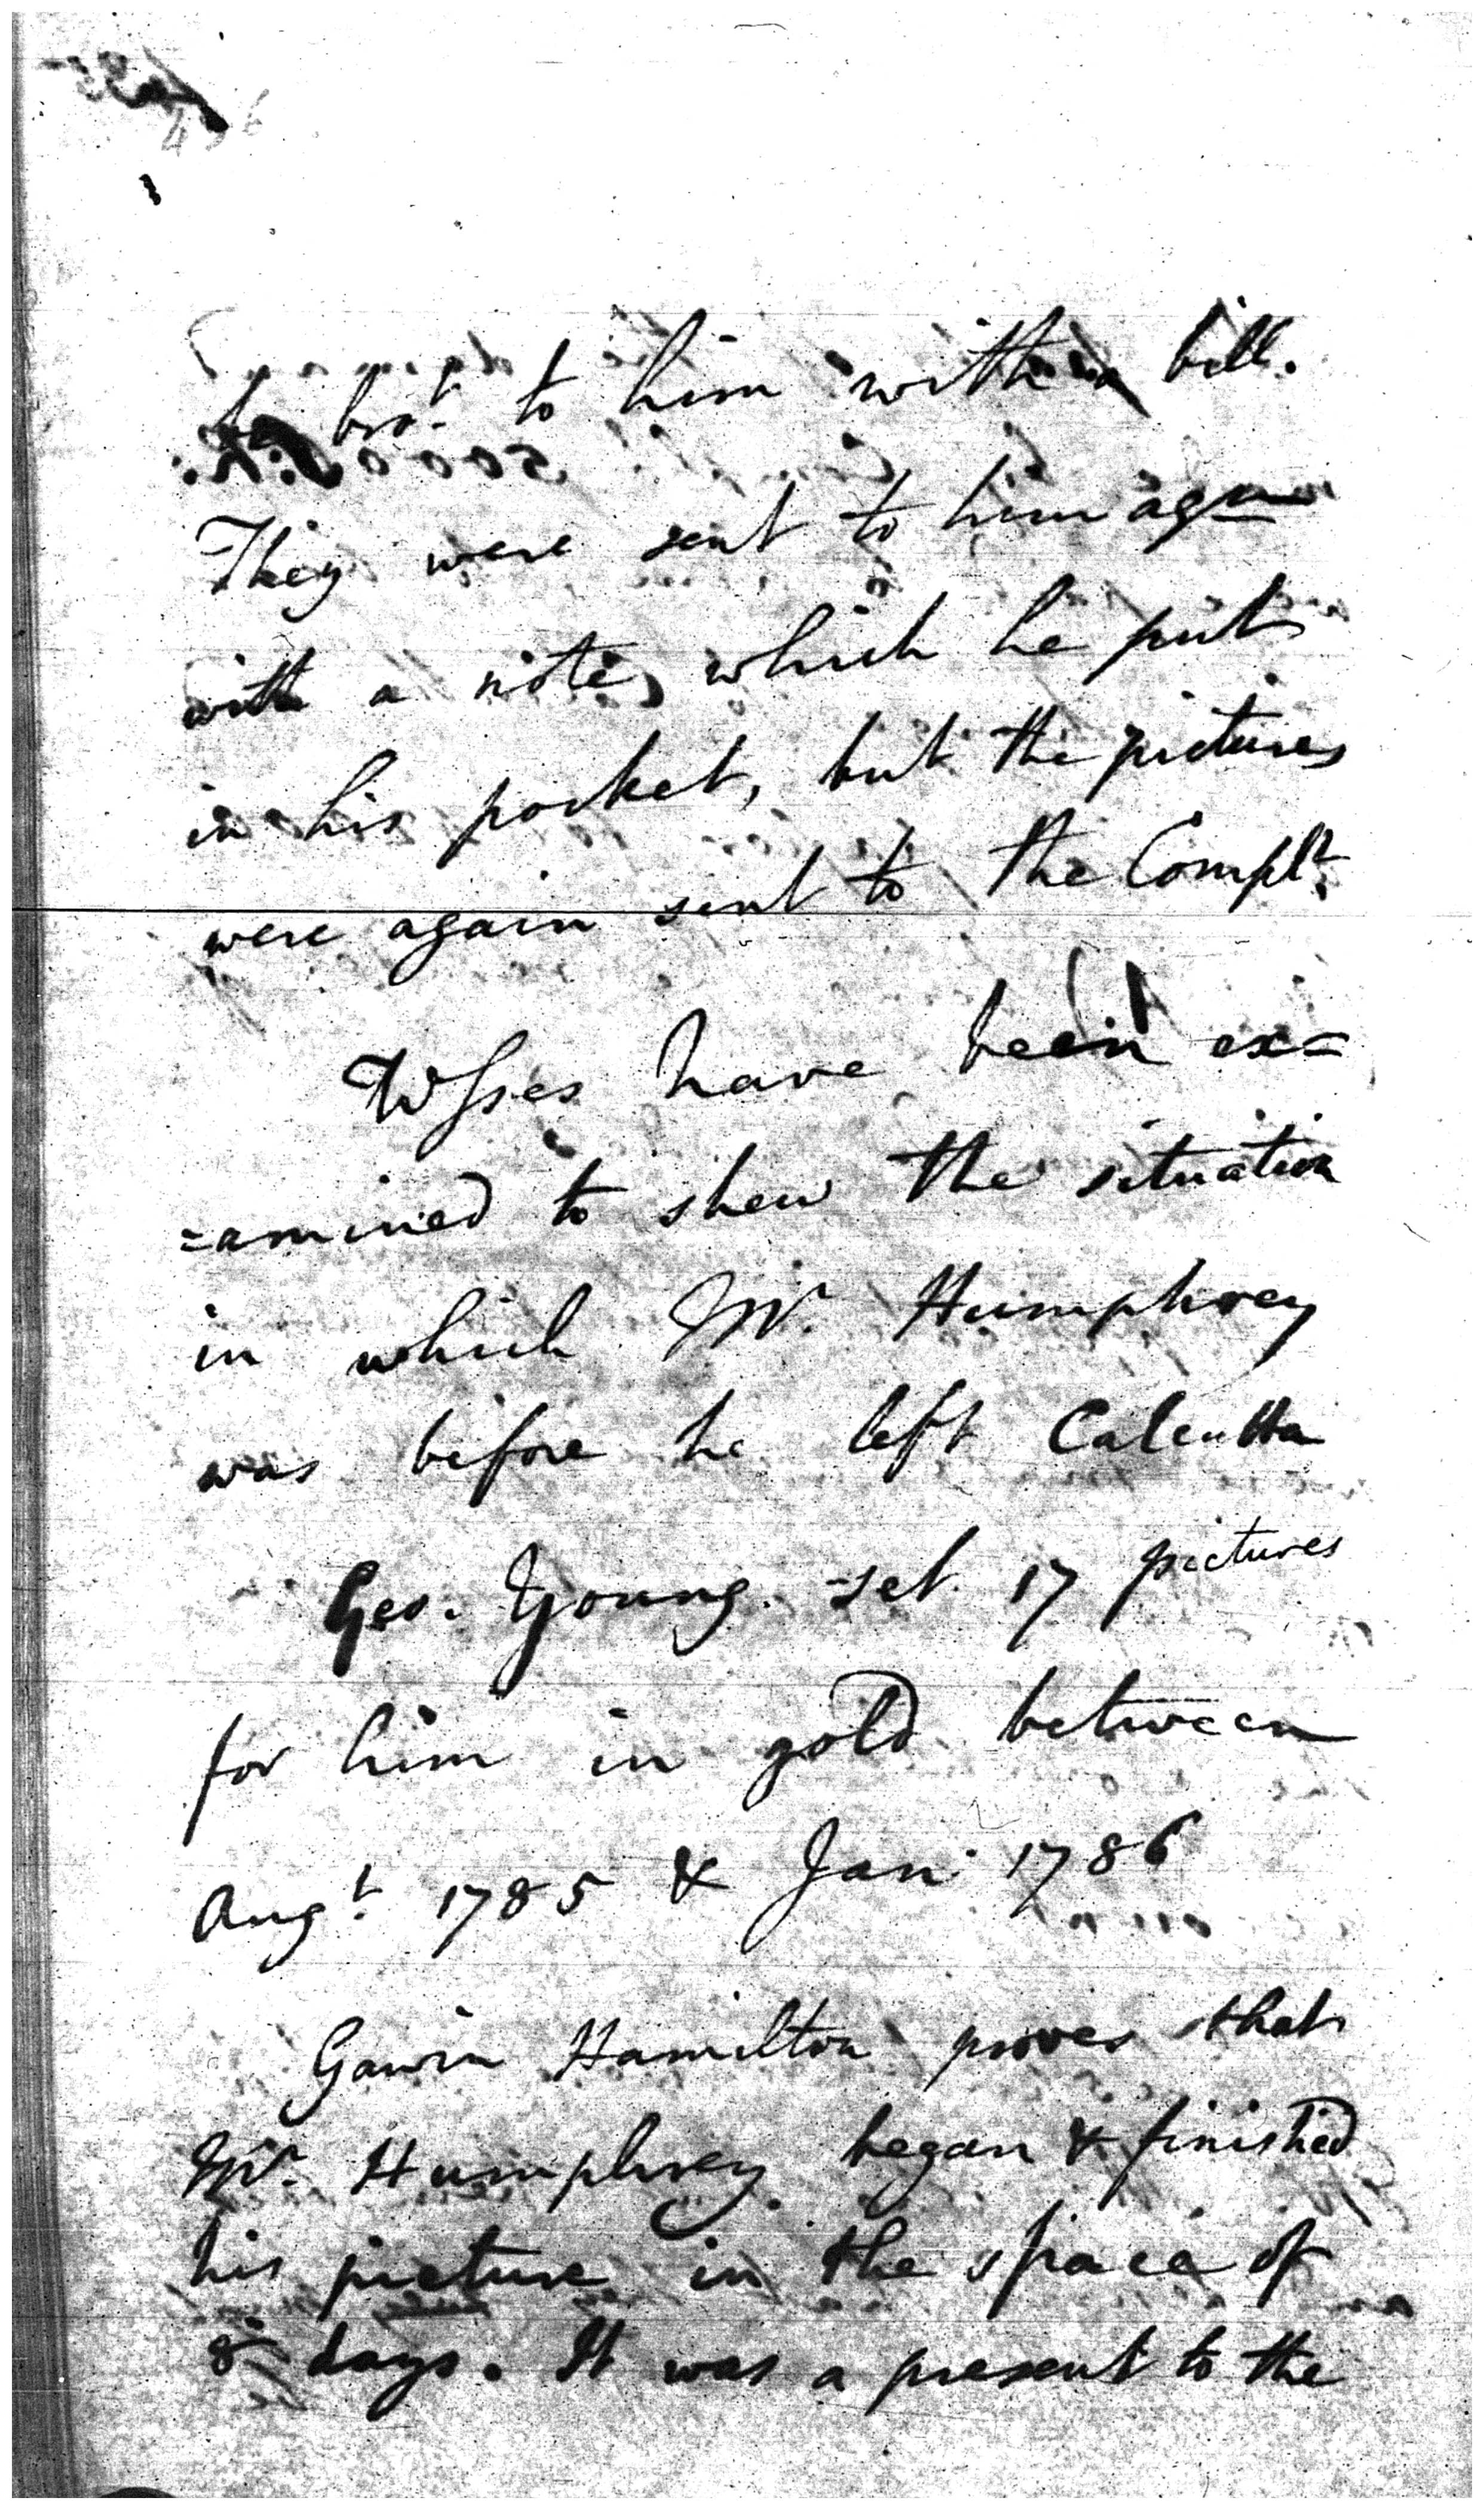 456
be bro.t to him with a bill.
They were sent to him aga
with a note, which he put
in his pocket, but the pictures
were again sent to the Compl.t
Wſses have been ex=
=amined to shew the situation
in which Mr. Humphrey
was before he left Calcutta
Geo. Young set 17 pictures
for him in gold between
Aug.t 1785 & Jan. 1786
Gawin Hamilton proves that
Mr. Humphrey began & finished
his picture in the space of
8 days. It was a present to the